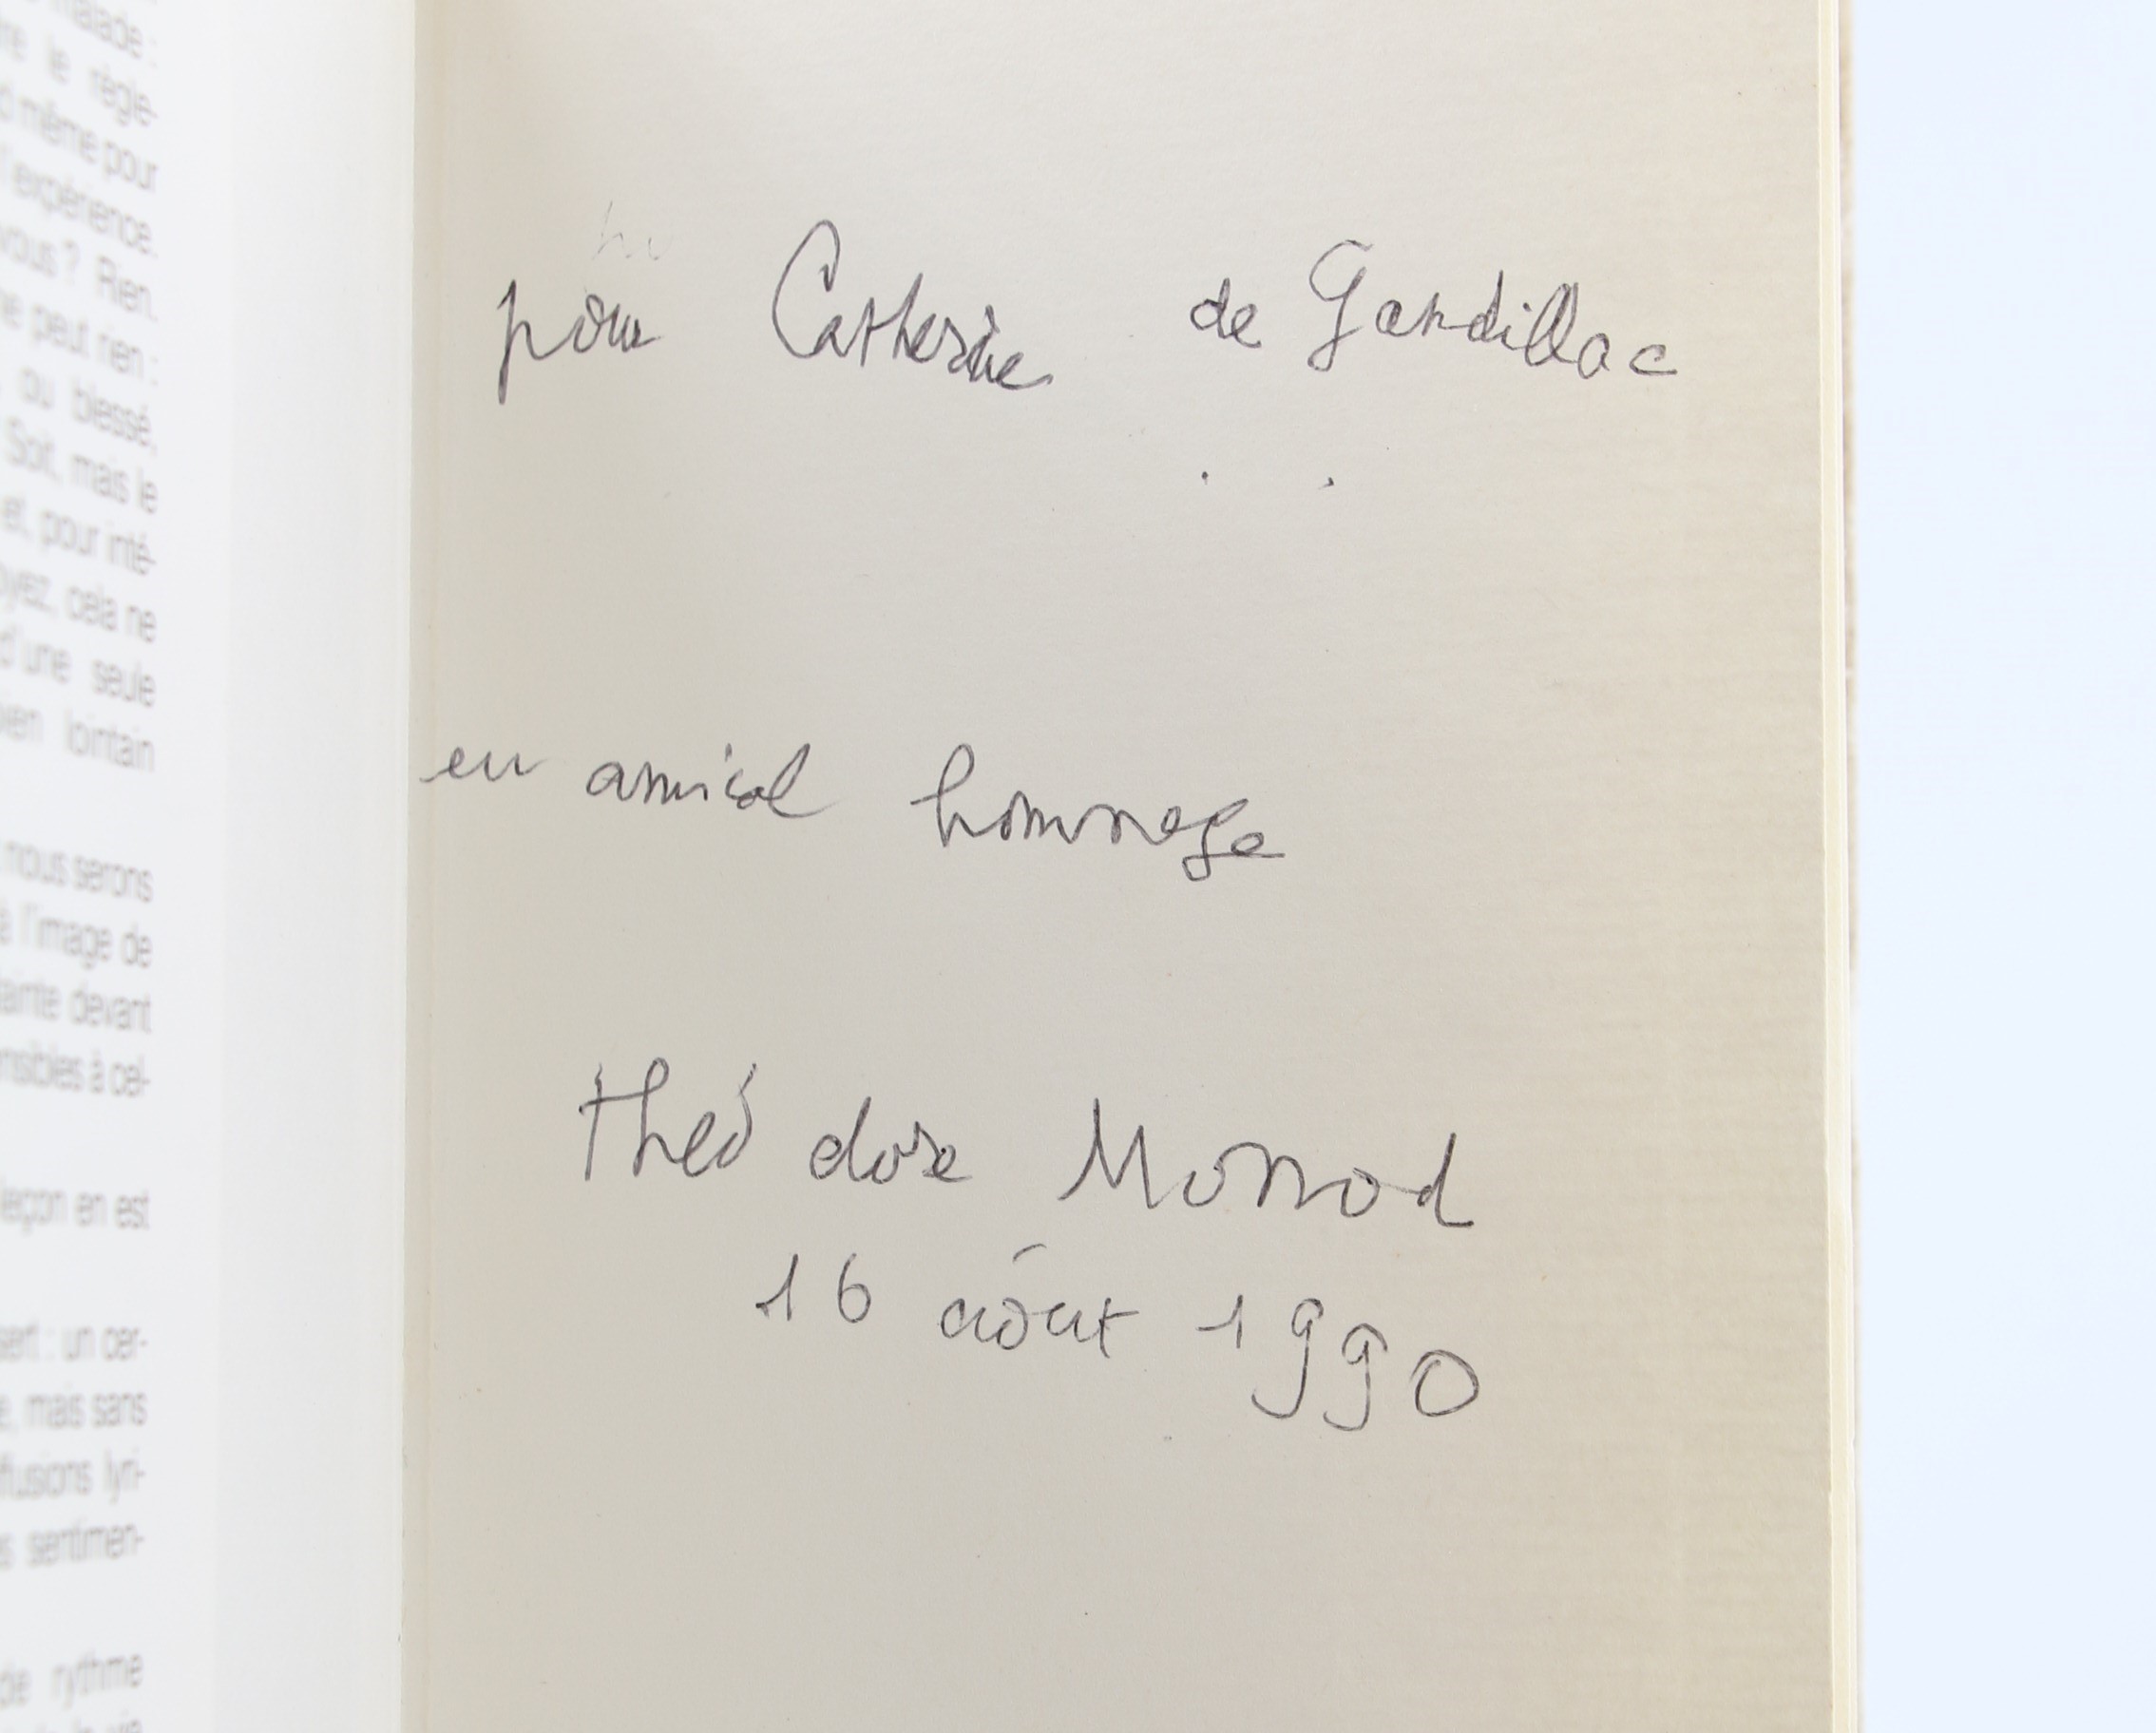 malade :
le règle-
même pour
l'expérience.
vous ? Rien.
ne peut rien :
ou blessé,
Soit, mais le
et, pour inté-
cela ne
d'une seule
lointain
nous serons
l'image de
devant
à cel-
leçon en est
un cer-
mais sans
lyri-
sentimen-
de rythme
pour Catherine de Gandillac
en amical hommage
Théodore Monod
16 août 1990